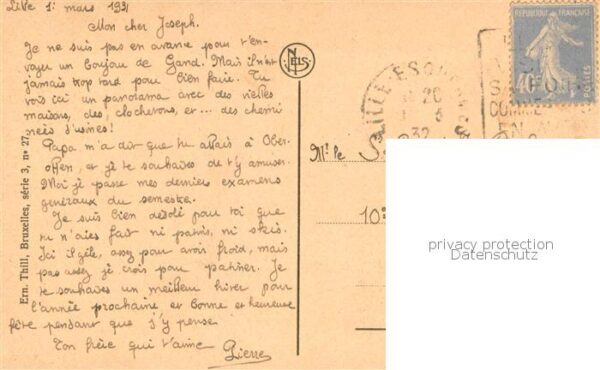 Lille 1: mars 193
Mon cher Joseph.
Je ne suis pas en avance pour t'en-
voyer un bonjour de Gand. Mais il n'est
jamais trop tard pour bien faire. Tu
vois ici un panorama avec des vieilles
maisons, des clochetons, et... des chemi
nées d'usines!
Papa m'a dit que tu allais à Ober-
, et je te souhaite de t'y amuser.
Moi je passe mes derniers examens
généraux du semestre.
Je suis bien désolé pour toi que
tu n'aies fait ni patins, ni skis.
Ici il gèle, assez pour avoir froid, mais
pas assez je crois pour patiner. Je
te souhaite un meilleur hiver pour
l'année prochaine et bonne et heureuse
fête pendant que j'y pense
Ton frère qui t'aime Pierre
Ern. Thill, Bruxelles, série 3, n° 27
NELS
LILLE
20
3
32
REPUBLIQUE FRANÇAISE
40c
POSTES
EN
Mr
10
privacy protection
Datenschutz